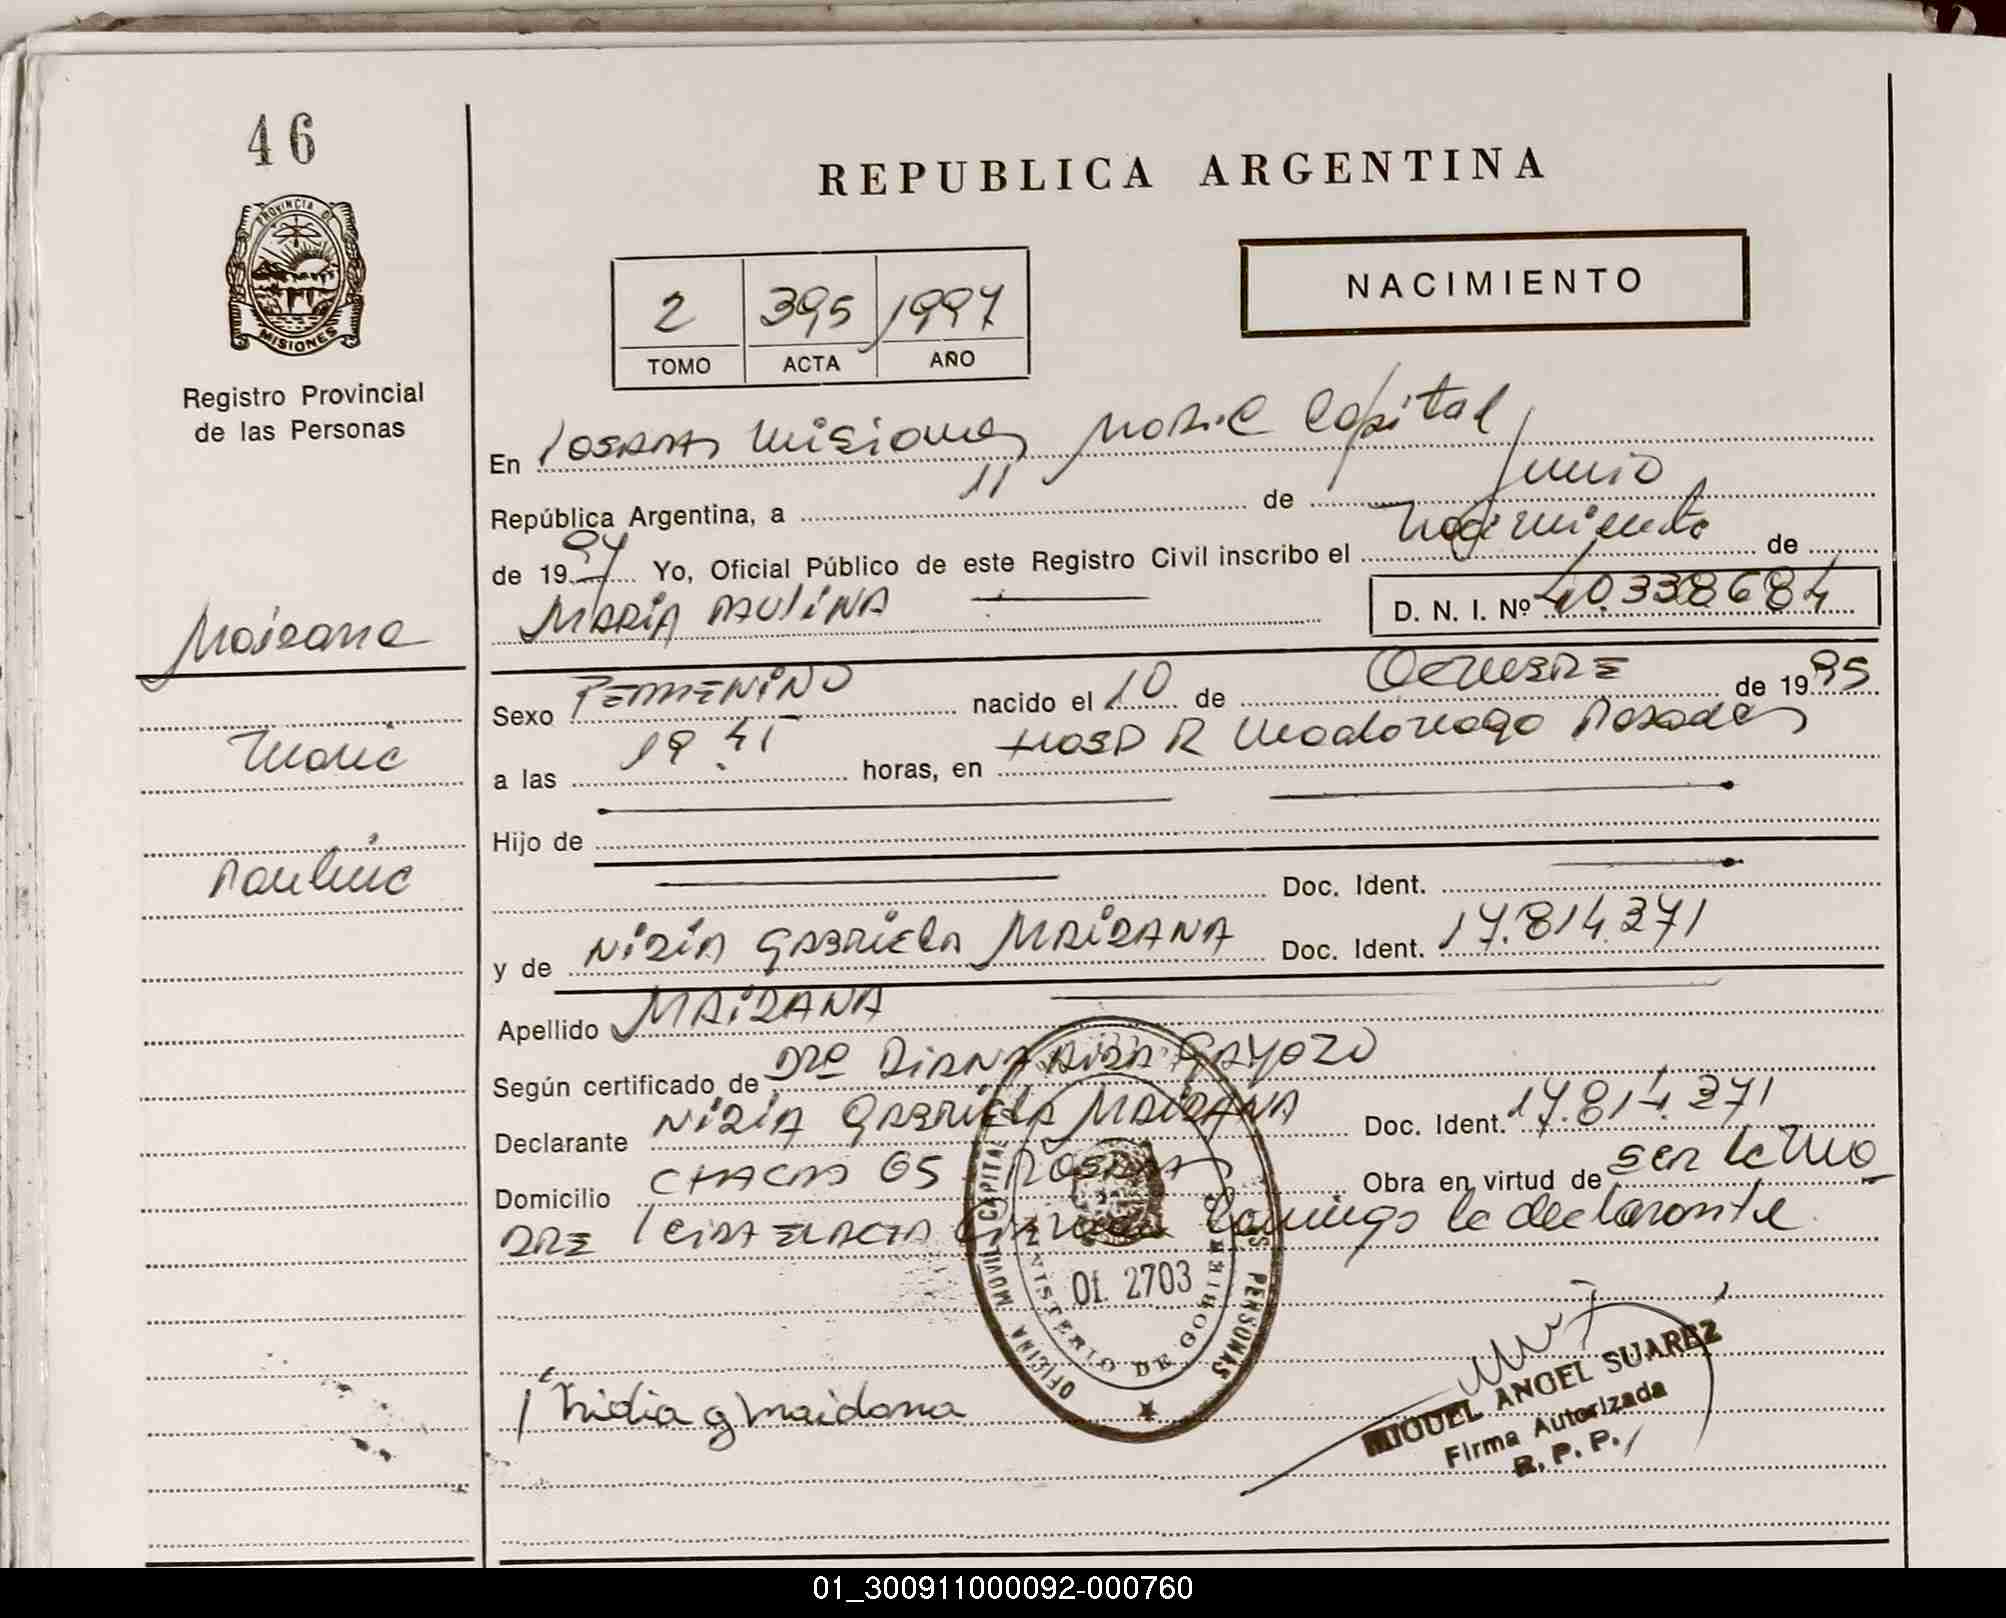 46
REPUBLICA ARGENTINA
PROVINCIA DE
MISIONES
NACIMIENTO
2 395 1997
TOMO ACTA AÑO
Registro Provincial
de las Personas
En Posadas Misiones Capital
República Argentina, a 11 de Junio
de 1997 Yo, Oficial Público de este Registro Civil inscribo el Nacimiento de
MARIA PAULINA D. N. I. Nº 40.338684
Maidana
Sexo FEMENINO nacido el 10 de OCTUBRE de 1995
Maria
a las 19.41 horas, en HOSP R Madariaga Posadas
Hijo de
Paulina
Doc. Ident.
y de NIDIA GABRIELA MAIDANA Doc. Ident. 17.814.371
Apellido MAIDANA
Según certificado de DRA DIANA AIDA GAYOZO
Declarante NIDIA GABRIELA MAIDANA Doc. Ident. 17.814.371
Domicilio CHACRA 65 POSADAS Obra en virtud de ser la Ma
DRE Leida el acta firma conmigo la declarante
OFICINA MOVIL CAPITAL PERSONAS
MINISTERIO DE GOBIERNO
Of. 2703
Nidia g maidana
MIGUEL ANGEL SUAREZ
Firma Autorizada
R. P. P.
01_300911000092-000760